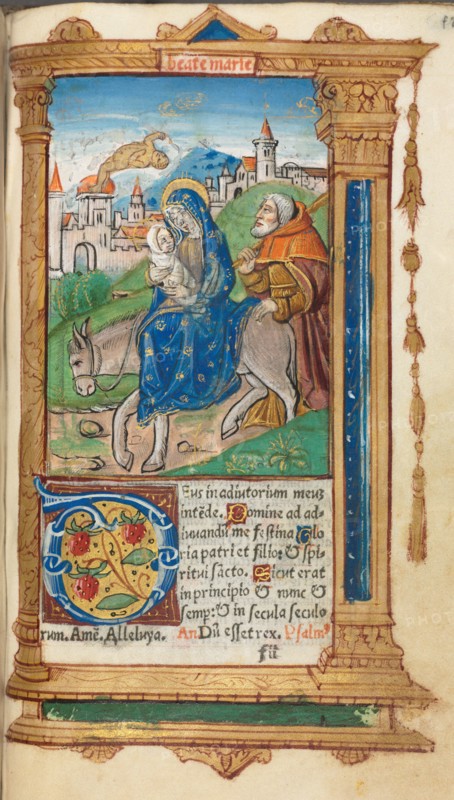 beate marie
Deus in adiutorium meuz
intēde. Domine ad ad-
iuuandū me festina Glo
ria patri et filio: & spi-
ritui sācto. Sicut erat
in principio & nunc &
semp: & in secula seculo
rum. Amē. Alleluya. An Dū esset rex. Psalm9